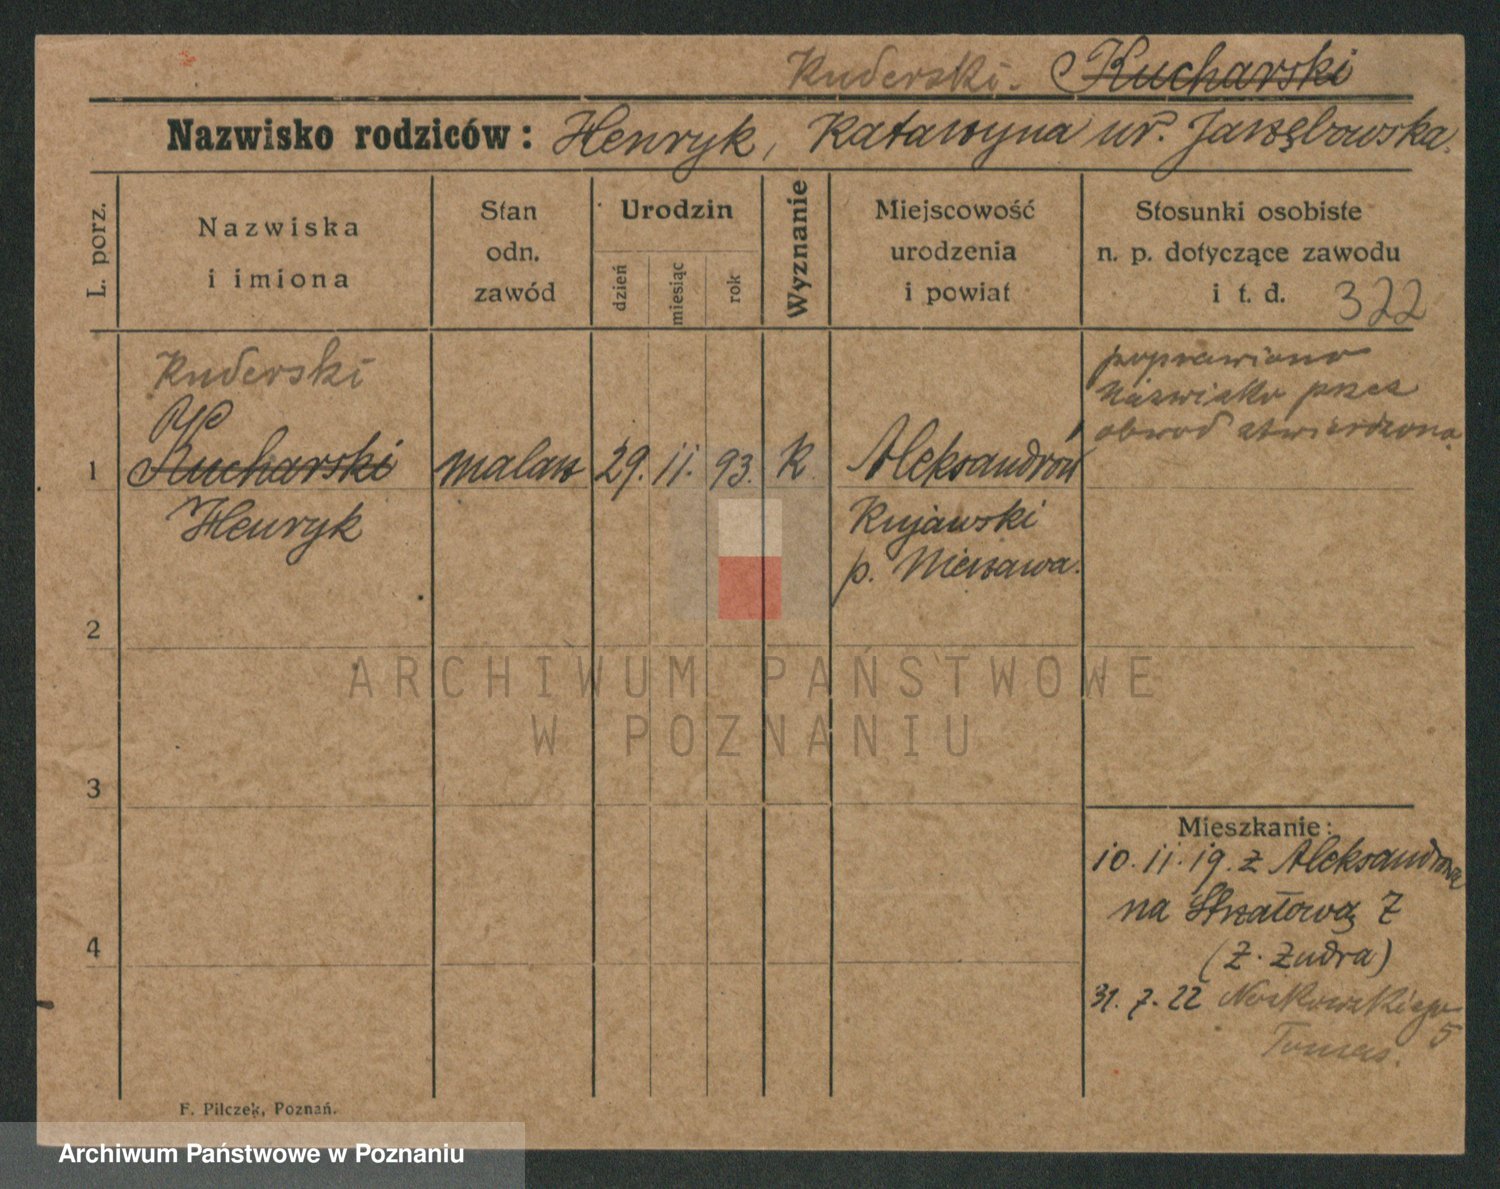 Kuderski. Kucharski
Nazwisko rodziców: Henryk, Katarzyna ur. Jarzębowska.
L. porz.
Nazwiska
i imiona
Stan
odn.
zawód
Urodzin
dzień
miesiąc
rok
Wyznanie
Miejscowość
urodzenia
i powiat
Stosunki osobiste
n. p. dotyczące zawodu
i t. d. 322
Kuderski
poprawiono
nazwisko przez
obwód
1 Kucharski malarz 29. 11. 93. K Aleksandrów
Henryk
Kujawski
p. Nieszawa.
2
ARCHIWUM PAŃSTWOWE
W POZNANIU
3
Mieszkanie:
10. 11. 19. z Aleksandrowa
na Strzałową 7
(z. Zudra)
4
31. 7. 22 Noskowskiego
5
F. Pilczek, Poznań.
Archiwum Państwowe w Poznaniu